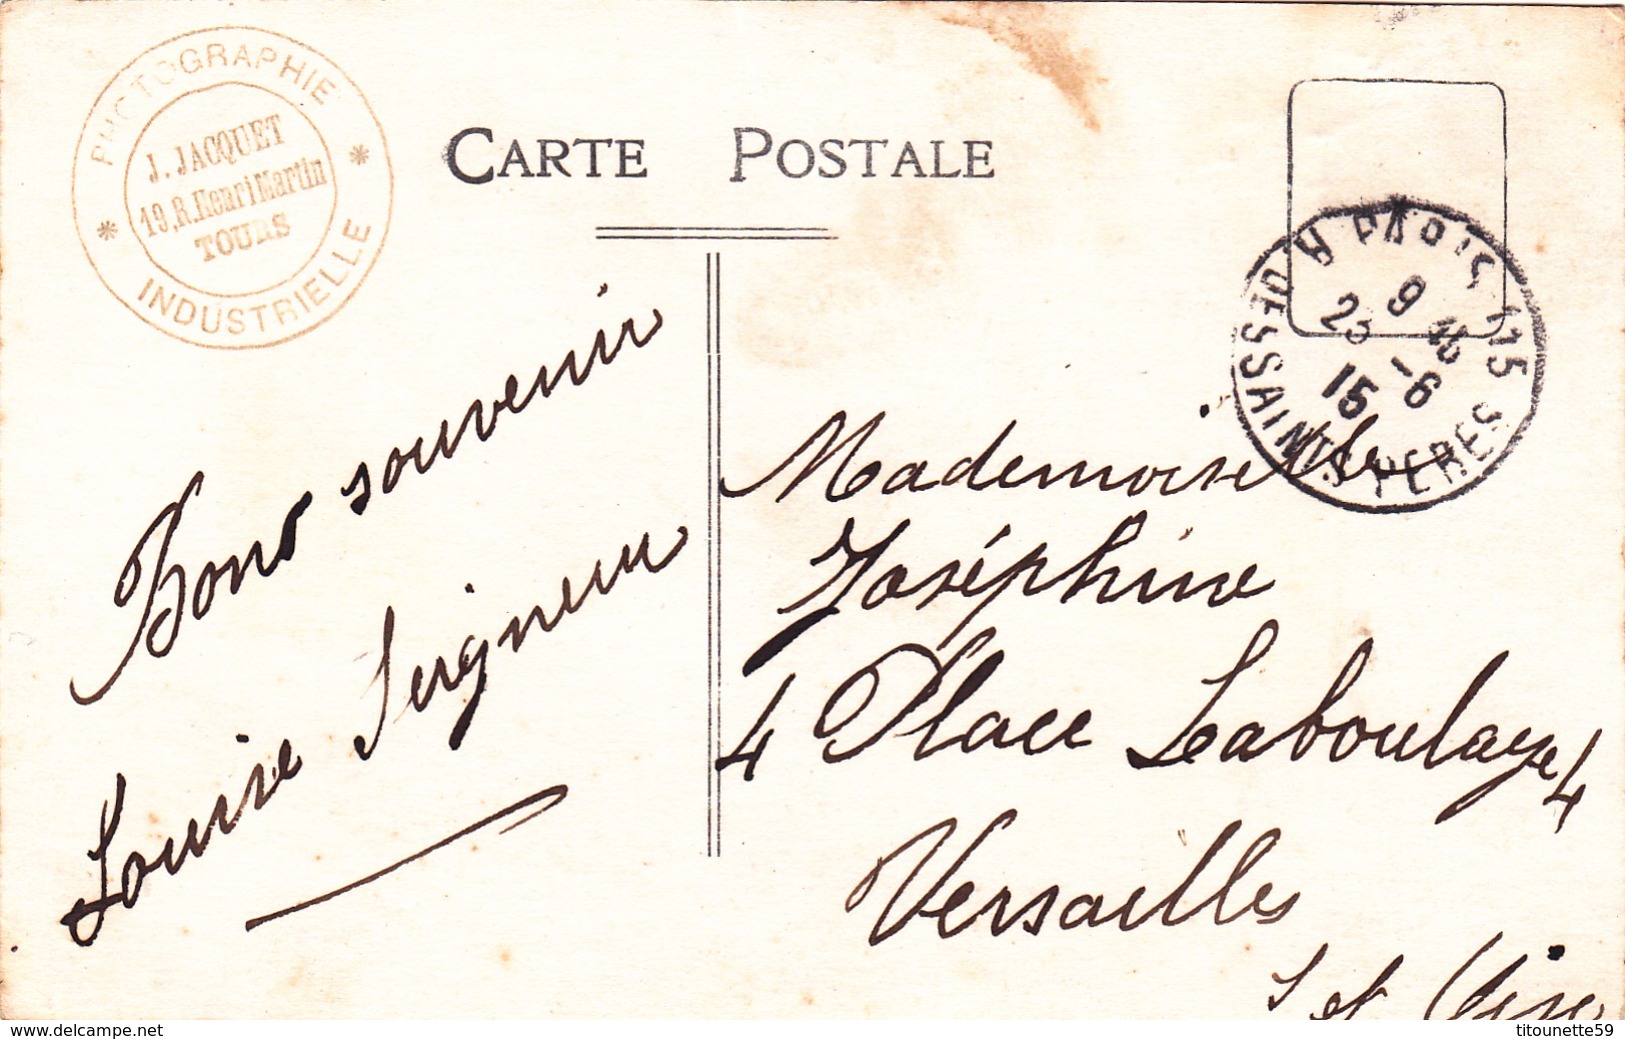 PHOTOGRAPHIE
J. JACQUET
19, R. Henri Martin
TOURS
INDUSTRIELLE
CARTE POSTALE
PARIS 115
R. DES SAINTS PERES
9 45
23 -6
15
Bons souvenir
Louise Seigneur
Mademoiselle
Joséphine
4 Place Laboulaye 4
Versailles
S et Oise
titounette59
www.delcampe.net